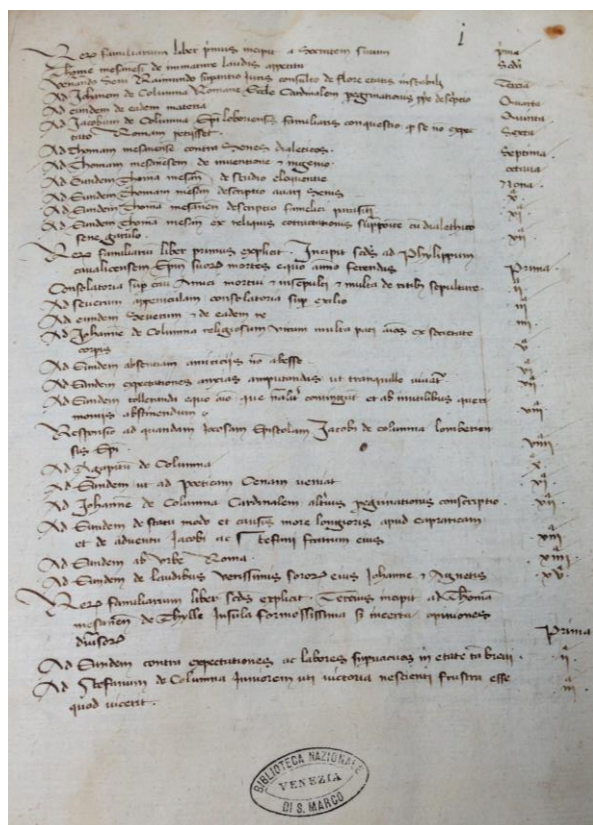 i
Rerꝝ familiarum liber primus incipit a Socratem suum pͥma
Thome mesanesi de immature laudis appetitu Scdᷓ
Venando Raimundo Juris consulto de flore etatis instabili Tercia
Ad Johannem de Columna Romane Eccle Cardinalem peginationis descptio Quarta
Ad eundem de eadem materia Quinta
Ad Jacobum de Columna Epm loboriensem familiaris conquestio ꝙ se no expec Sexta
tato Romam petisset.
Ad Thomam mesanense contra Senes dialeticos. Septima
Ad Thomam mesanesem de inventione ⁊ ingenio octava
Ad Eundem Thoma mesan. de studio eloquentie Nona
Ad Eundem Thomam mesan descriptio avari Senis x
Ad Eundem Thoma mesanen descriptio famelici parasiti xi
Ad Eundem Thoma mesan ex reliquis cum dialethico xii
sene garulo.
Rerꝝ familiarum liber primus explicit. Incipit scds ad Phylippum Prima
cavalicensem Epm suorꝝ mortes equo animo ferendas
Consolatoria sup casu Amici mortui ⁊ insepulti ⁊ multa de ritib sepulture. ii
Ad severum appenicolam consolatoria sup exilio iii
Ad eundem Severum ⁊ de eadem re iiii
Ad Johanne de Columna religiosum virum multa pati aīas ex societate v
corporis
Ad Eundem absentiam amicicijs nō abesse vi
Ad Eundem expectationes anxias amputandas ut tranquille vivat vii
Ad Eundem tollerandi equo aīo que contingunt et ab inutilibus queri viii
moniis abstinendum
Responsio ad quandam Jocosam Epistolam Jacobi de columna lomberien viiii
sis Epi
Ad Agapitu de Columna x
Ad Eundem ut ad poeticam Cenam veniat xi
Ad Johanne de Columna Cardinalem altius peginationis conscriptio xii
Ad Eundem de statu modo et causis more longioris apud capranicam xiii
et de adventu Jacobi ac Stefani fratrum eius
Ad Eundem ab Urbe Roma xiiii
Ad Eundem de laudibus verissimis sororꝝ eius Johanne ⁊ Agnetis xv
Rerꝝ familiarum liber scds explicit. Tercius incipit ad Thomā
mesanen de Thylle Insula formosissima sʒ incerta opiniones Prima
diversorꝝ
Ad Eundem contra expectationes ac labores supvacuos in etate tā brevi. ii
Ad Stefanum de Columna Juniorem uti victoria nescienti frustra esse iii
quod vicerit.
BIBLIOTECA NAZIONALE
VENEZIA
DI S. MARCO